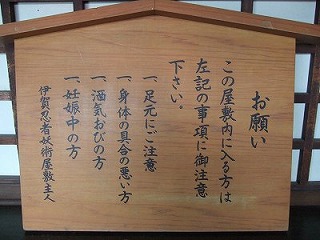 お願い
この屋敷内に入る方は
左記の事項に御注意
下さい。
一、足元にご注意
一、身体の具合の悪い方
一、酒気おびの方
一、妊娠中の方
伊賀忍者妖術屋敷主人